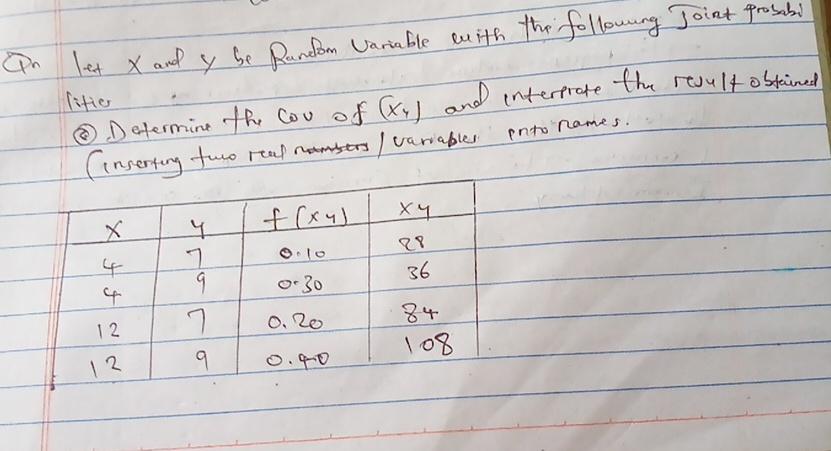 Qn let X and y be Random Variable with the following Joint probabi
lities
② Determine the Cov of (xy) and interprate the result obtained
(inserting two real numbers / variables onto names.
x y f(xy) xy
4 7 0.10 28
4 9 0.30 36
12 7 0.20 84
12 9 0.40 108